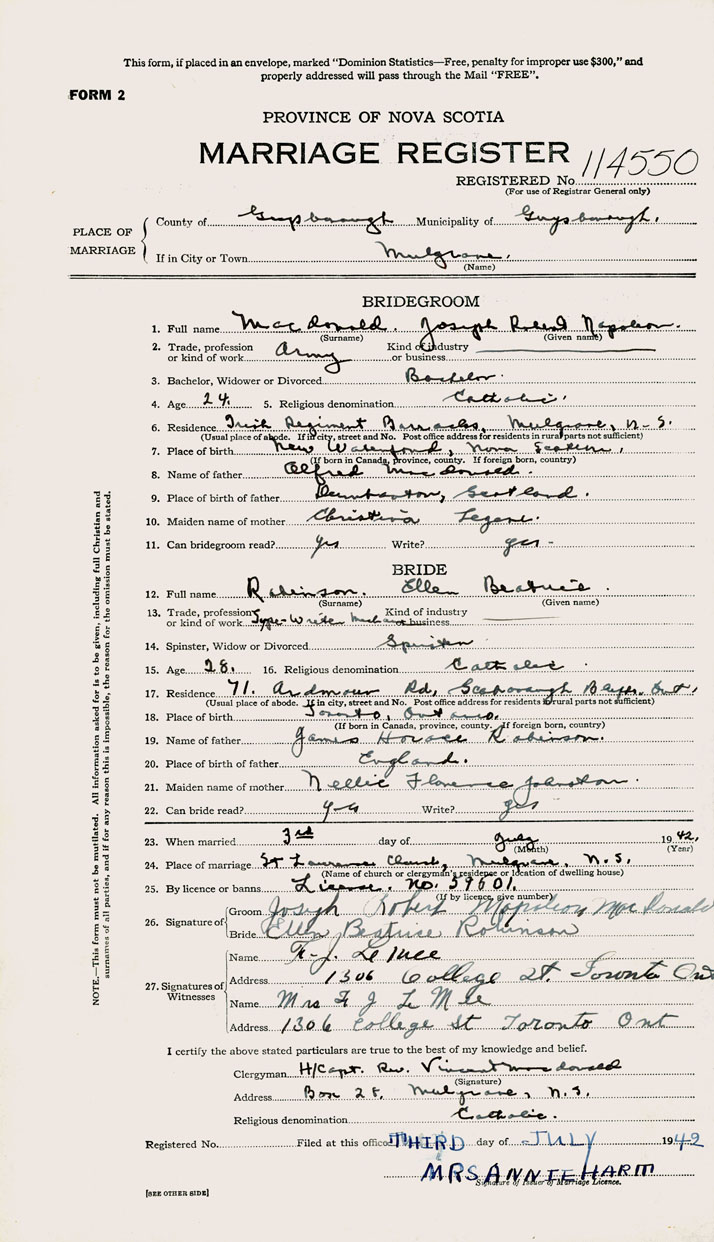 This form, if placed in an envelope, marked "Dominion Statistics—Free, penalty for improper use $300," and
properly addressed will pass through the Mail "FREE".
FORM 2
PROVINCE OF NOVA SCOTIA
MARRIAGE REGISTER 114550
REGISTERED No.
(For use of Registrar General only)
PLACE OF MARRIAGE
County of Guysborough Municipality of Guysborough.
If in City or Town Mulgrave.
(Name)
BRIDEGROOM
1. Full name MacDonald. Joseph Robert Napoleon.
(Surname) (Given name)
2. Trade, profession or kind of work Army Kind of industry or business
3. Bachelor, Widower or Divorced Bachelor.
4. Age 24. 5. Religious denomination Catholic.
6. Residence Irish Regiment Barracks, Mulgrave, N-S.
(Usual place of abode. If in city, street and No. Post office address for residents in rural parts not sufficient)
7. Place of birth New Waterford, Nova Scotia,
(If born in Canada, province, county. If foreign born, country)
8. Name of father Alfred MacDonald.
9. Place of birth of father Dumbarton, Scotland.
10. Maiden name of mother Christina
11. Can bridegroom read? yes Write? yes -
BRIDE
12. Full name Robinson. Ellen Beatrice.
(Surname) (Given name)
13. Trade, profession or kind of work Type-Writer Kind of industry or business
14. Spinster, Widow or Divorced Spinster
15. Age 28. 16. Religious denomination Catholic
17. Residence 71. Ardmour Rd, Scarborough Ont,
(Usual place of abode. If in city, street and No. Post office address for residents in rural parts not sufficient)
18. Place of birth Toronto, Ontario.
(If born in Canada, province, county. If foreign born, country)
19. Name of father James Horace Robinson.
20. Place of birth of father England.
21. Maiden name of mother Nellie Florence Johnston.
22. Can bride read? yes Write? yes
23. When married 3rd day of July 1942,
(Month) (Year)
24. Place of marriage St Laurence Church, Mulgrave, N.S.
(Name of church or clergyman's residence or location of dwelling house)
25. By licence or banns License. No. 59601.
(If by licence, give number)
26. Signature of
Groom Joseph Robert Napoleon MacDonald
Bride Ellen Beatrice Robinson
27. Signatures of Witnesses
Name F-J.
Address 1306 College St. Toronto Ont
Name Mrs F J
Address 1306 College St Toronto Ont
I certify the above stated particulars are true to the best of my knowledge and belief.
Clergyman H/Capt. Rev. Vincent MacDonald
(Signature)
Address Box 28, Mulgrave, N.S.
Religious denomination Catholic.
Registered No. Filed at this office THIRD day of JULY 1942
MRS ANNIE HARM
Signature of Issuer of Marriage Licence.
[SEE OTHER SIDE]
NOTE.—This form must not be mutilated. All information asked for is to be given, including full Christian and
surnames of all parties, and if for any reason this is impossible, the reason for the omission must be stated.